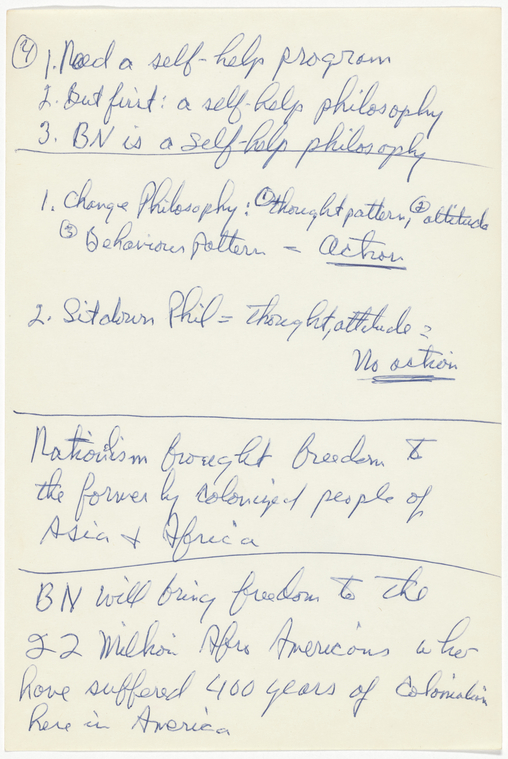 ④ 1. Need a self-help program
2. But first: a self-help philosophy
3. BN is a self-help philosophy
1. Change Philosophy: ① thought pattern, ② attitude
③ Behaviour pattern = action
2. Sitdown Phil = thought, attitude =
No action
Nationlism brought freedom to
the formerly colonized people of
Asia & Africa
BN will bring freedom to the
22 Million Afro Americans who
have suffered 400 years of colonialism
here in America